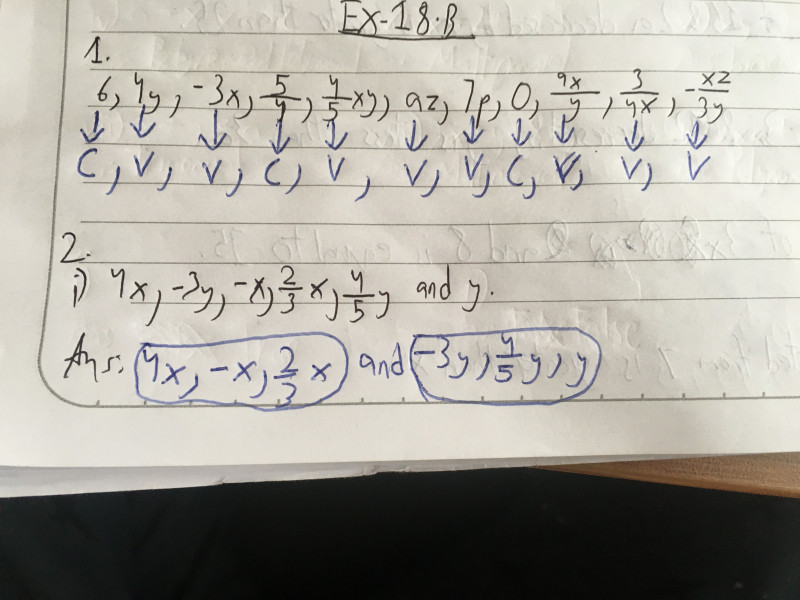 Ex-18.B
1.
6, 4y, -3x, 5/4, 4/5 xy, az, 7p, 0, 9x/y, 3/4x, -xz/3y
↓ ↓ ↓ ↓ ↓ ↓ ↓ ↓ ↓ ↓ ↓
C, V, V, C, V, V, V, C, V, V, V
2.
i) 4x, -3y, -x, 2/3 x, 4/5 y and y.
Ans: 4x, -x, 2/3 x and -3y, 4/5 y, y